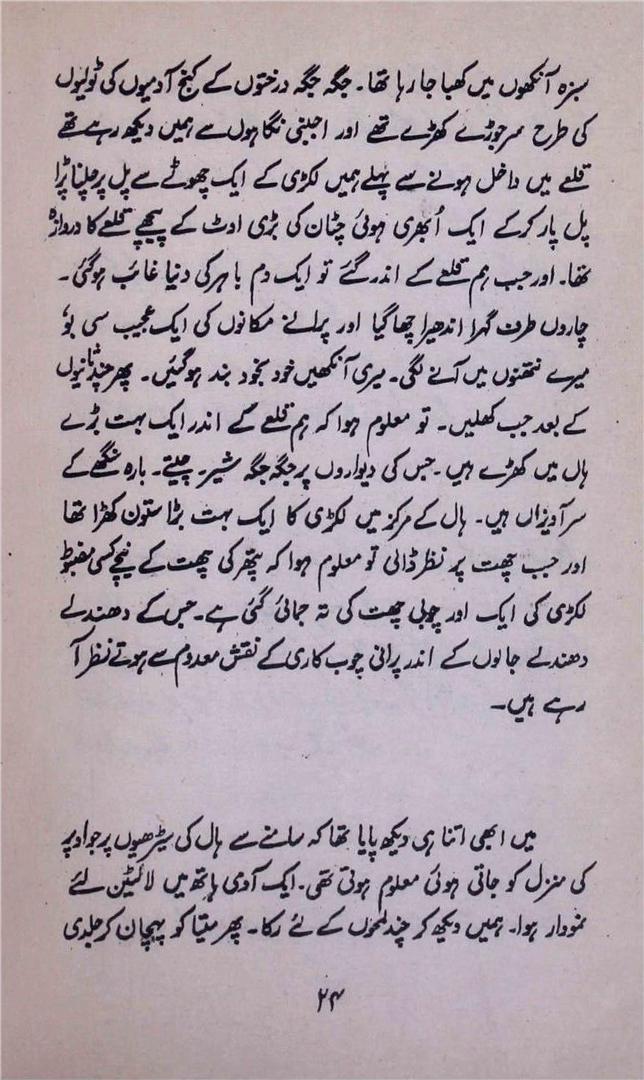 سبزہ آنکھوں میں کھبا جا رہا تھا۔ جگہ جگہ درختوں کے کنج آدمیوں کی ٹولیوں
کی طرح سرجوڑے کھڑے تھے اور اجنبی نگاہوں سے ہمیں دیکھ رہے تھے
قلعے میں داخل ہونے سے پہلے ہمیں لکڑی کے ایک چھوٹے سے پل پر چلنا پڑا
پل پار کرکے ایک اُبھری ہوئی چٹان کی بڑی اوٹ کے پیچھے قلعے کا دروازہ
تھا۔ اور جب ہم قلعے کے اندر گئے تو ایک دم باہر کی دنیا غائب ہوگئی۔
چاروں طرف گہرا اندھیرا چھا گیا اور پرانے مکانوں کی ایک عجیب سی بُو
میرے نتھنوں میں آنے لگی۔ میری آنکھیں خود بخود بند ہوگئیں۔ پھر چند ثانیوں
کے بعد جب کھلیں۔ تو معلوم ہوا کہ ہم قلعے کے اندر ایک بہت بڑے
ہال میں کھڑے ہیں۔ جس کی دیواروں پر جگہ جگہ شیر۔ چیتے۔ بارہ سنگھے کے
سر آویزاں ہیں۔ ہال کے مرکز میں لکڑی کا ایک بہت بڑا ستون کھڑا تھا
اور جب چھت پر نظر ڈالی تو معلوم ہوا کہ پتھر کی چھت کے نیچے کسی مضبوط
لکڑی کی ایک اور چوبی چھت کی تہ جمائی گئی ہے۔ جس کے دھندلے
دھندلے جالوں کے اندر پرانی چوب کاری کے نقش معدوم سے ہوتے نظر آ
رہے ہیں۔
میں ابھی اتنا ہی دیکھ پایا تھا کہ سامنے سے ہال کی سیڑھیوں پر جو اوپر
کی منزل کو جاتی ہوئی معلوم ہوتی تھی۔ ایک آدمی ہاتھ میں لالٹین لئے
نمودار ہوا۔ ہمیں دیکھ کر چند لمحوں کے لئے رکا۔ پھر متیا کو پہچان کر جلدی
۲۴